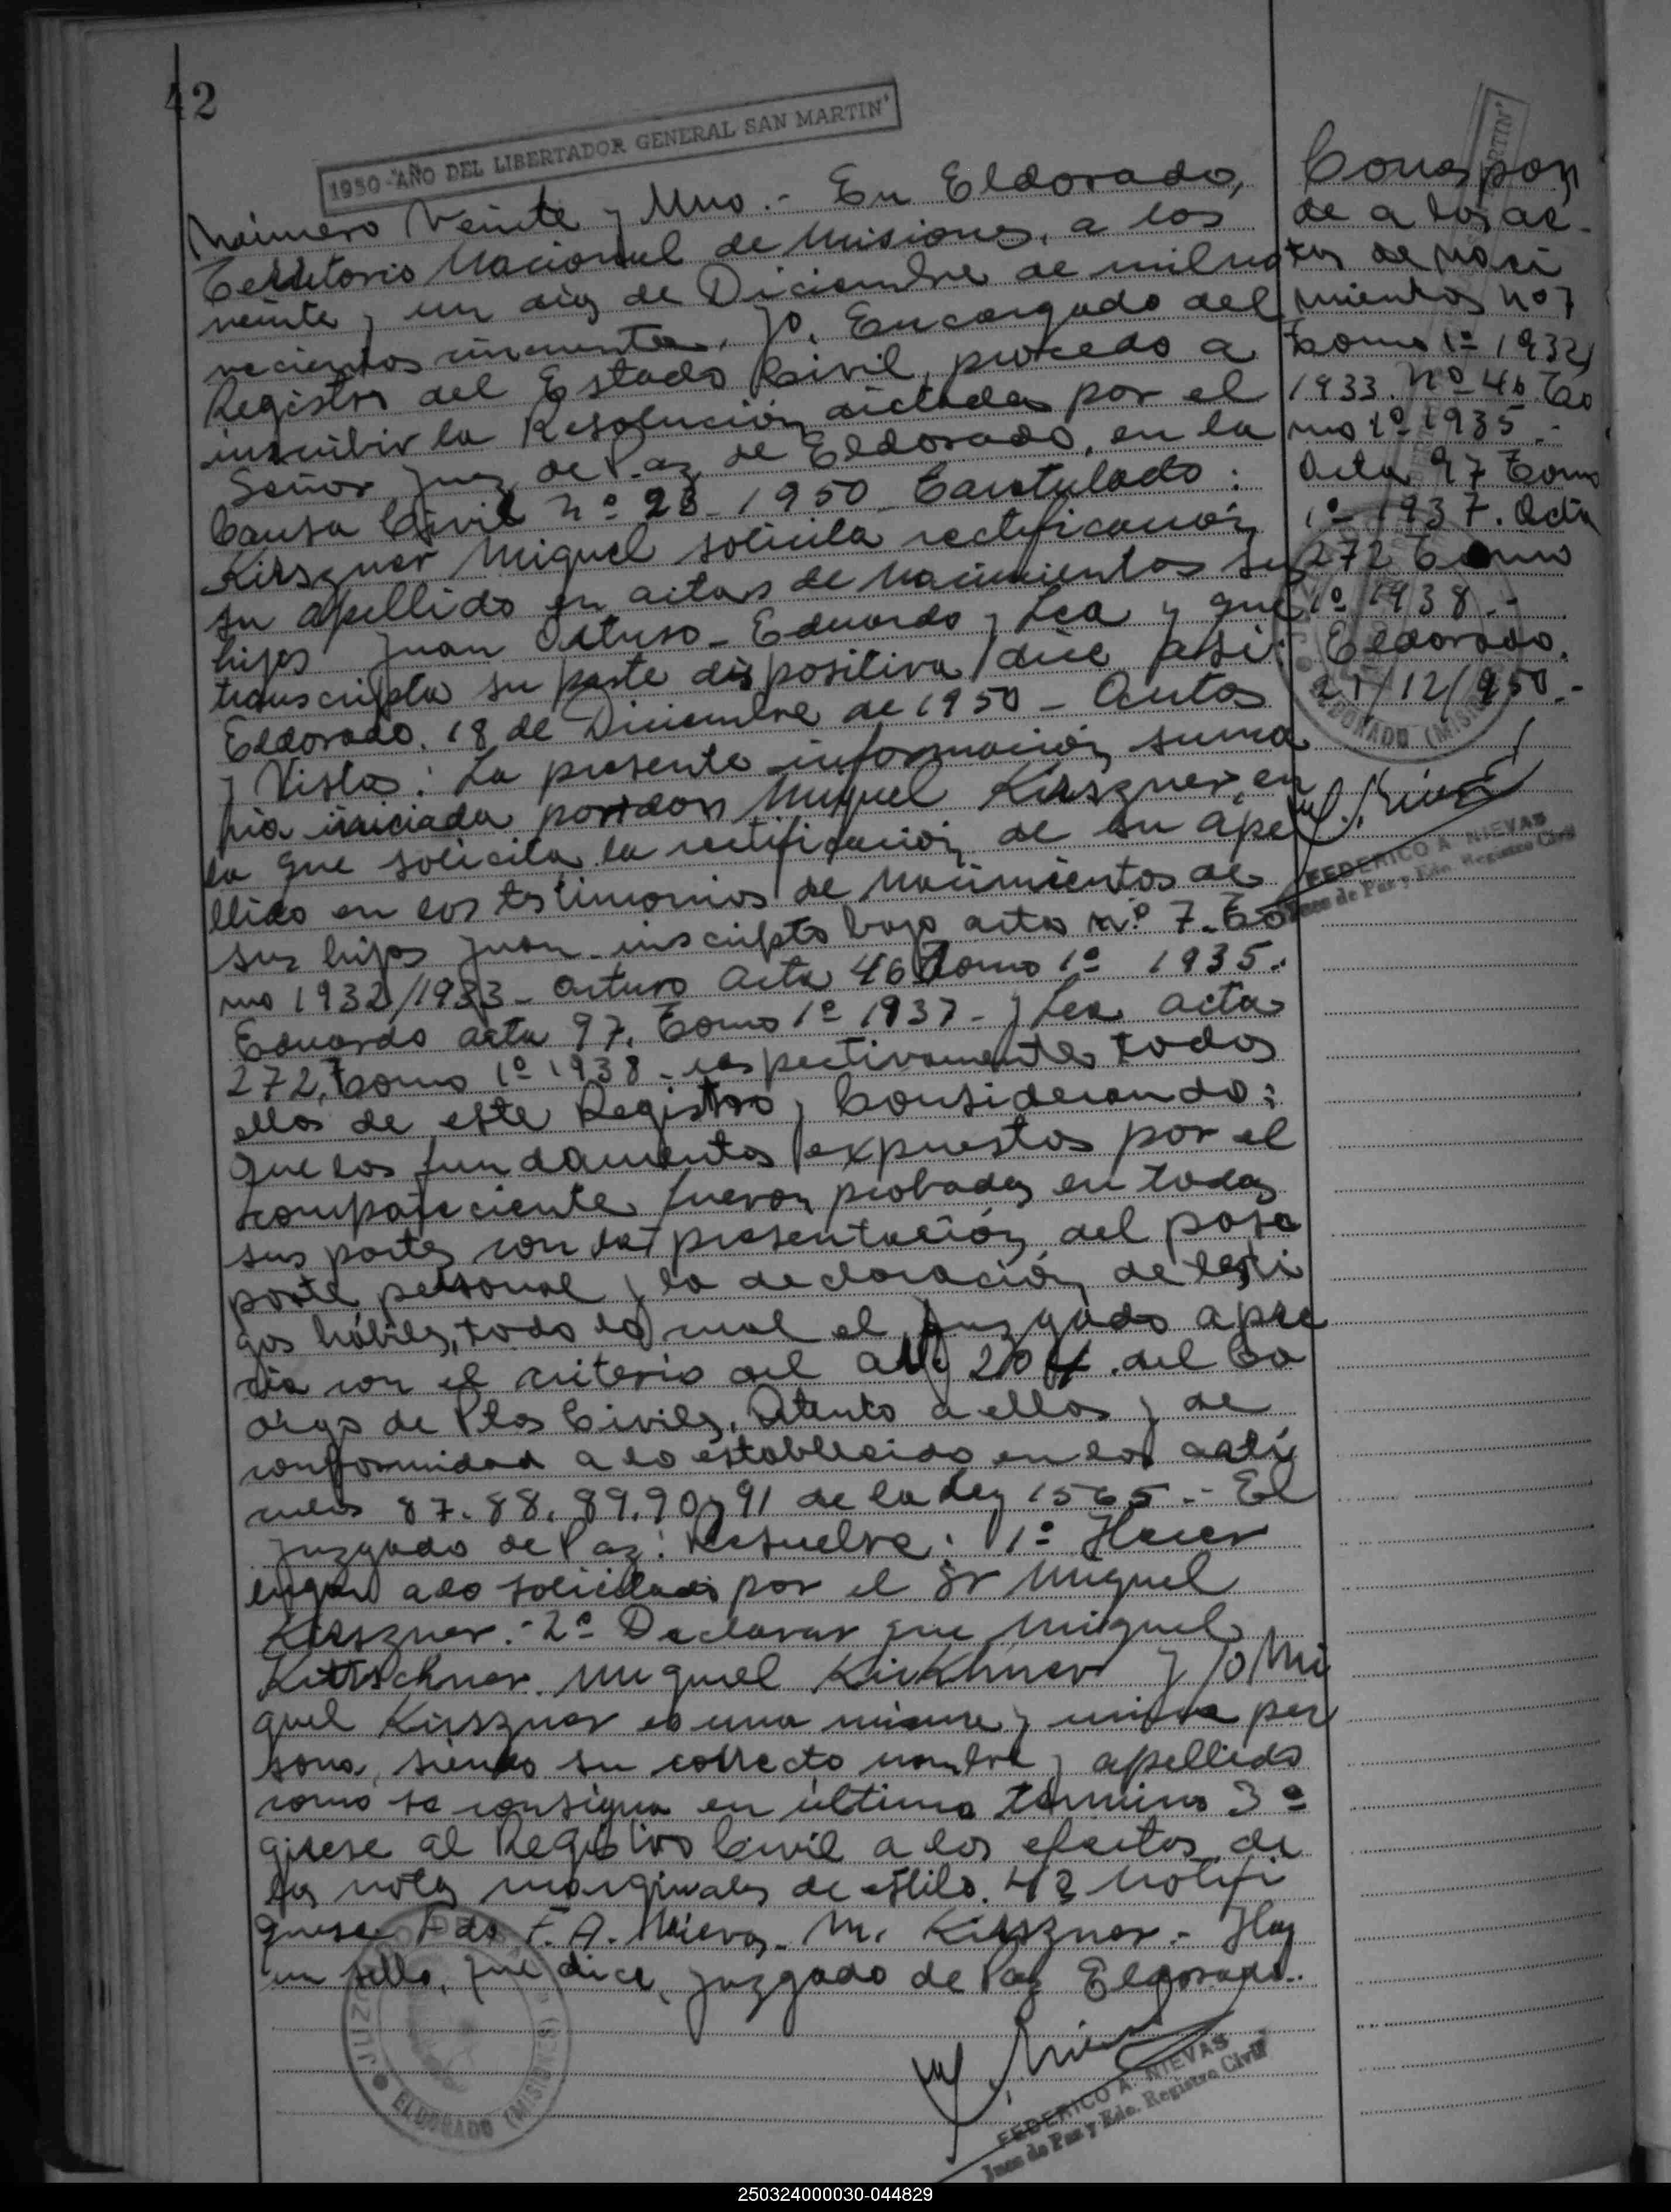 42
1950-"AÑO DEL LIBERTADOR GENERAL SAN MARTIN"
Número Veinte y Uno.- En Eldorado,
Territorio Nacional de Misiones, a los
veinte y un dias de Diciembre de mil no
vecientos cincuenta. Yo, Encargado del
Registro del Estado Civil, procedo a
inscribir la Resolución dictada por el
Señor Juez de Paz de Eldorado, en la
Causa Civil Nº 28-1950 Caratulado:
Kirszner Miguel solicita rectificación
su apellido en actas de nacimientos sus
hijos Juan Arturo - Eduardo y Lea y que
transcripta su parte dispositiva dice asi:
Eldorado, 18 de Diciembre de 1950 - Autos
y Vistos: La presente información suma
ria iniciada por don Miguel Kirszner, en
la que solicita la rectificación de su ape
llido en los testimonios de nacimientos de
sus hijos Juan inscripto bajo acta nº 7. To
mo 1932/1933 - Arturo Acta 46 Tomo 1º 1935.
Eduardo acta 97. Tomo 1º 1937 - y Lea acta
272, Tomo 1º 1938 - respectivamente todos
ellos de este Registro y Considerando:
Que los fundamentos expuestos por el
compareciente fueron probados en todas
sus partes con la presentación del pasa
porte personal y la declaración de testi
gos hábiles, todo lo cual el Juzgado apre
cia con el criterio del art. 204 del Co
digo de Ptos Civiles. Atento a ellos y de
conformidad a lo establecido en los artí
culos 87. 88. 89. 90 y 91 de la Ley 1565.- El
Juzgado de Paz: Resuelve: 1º Hacer
lugar a lo solicitado por el Sr Miguel
Kirszner.- 2º Declarar que Miguel
Kirtschner Miguel Kirkhner y/o Mi
guel Kirszner es una misma y única per
sona, siendo su correcto nombre y apellido
como se consigna en último término 3º
girese al Registro Civil a los efectos de
las notas marginales de estilo. 4º Notifi
quese Fdo F. A. Nieves - M. Kirszner.- Hay
un sello, que dice, Juzgado de Paz Eldorado.-
ELDORADO (MISIONES)
FEDERICO A. NIEVAS
Juez de Paz y Edo. Registro Civil
Correspon
de a las ac-
tas de naci
mientos nº 7
Tomo 1º 1932/
1933. Nº 46 To
mo 1º 1935.-
Acta 97 Tomo
1º 1937. Acta
272 Tomo
1º 1938.-
Eldorado.
21/12/950.-
ELDORADO (MISIONES)
FEDERICO A. NIEVAS
Juez de Paz y Edo. Registro Civil
250324000030-044829